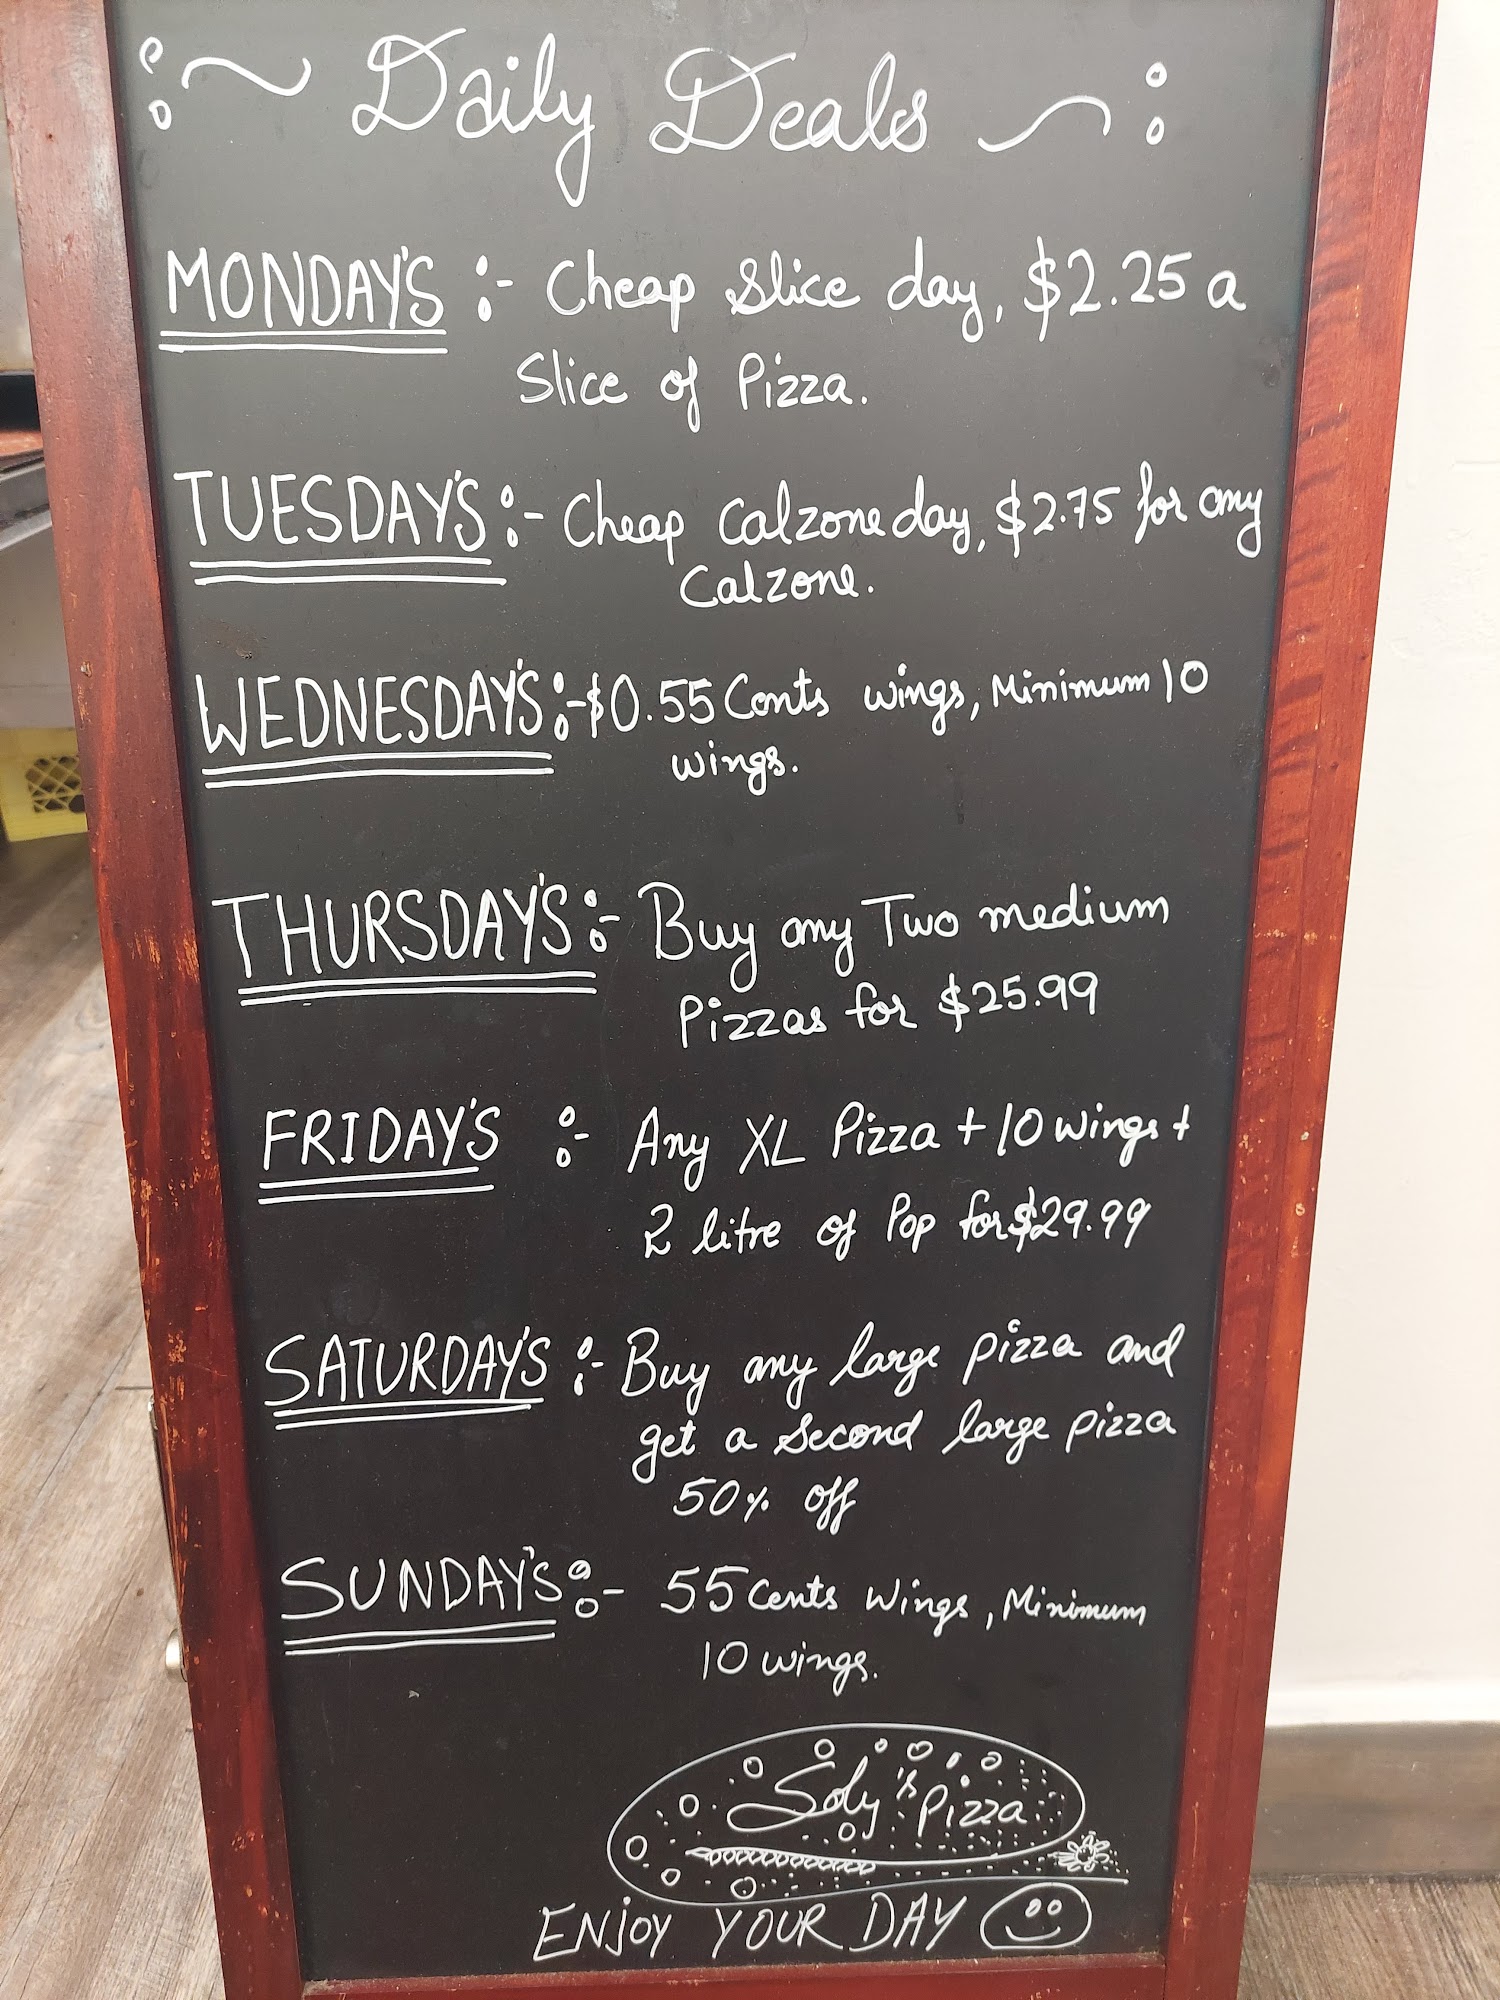 Daily Deals
MONDAY'S :- Cheap Slice day, $2.25 a
Slice of Pizza.
TUESDAY'S :- Cheap Calzone day, $2.75 for any
Calzone.
WEDNESDAY'S :- $0.55 Cents wings, Minimum 10
wings.
THURSDAY'S :- Buy any Two medium
Pizzas for $25.99
FRIDAY'S :- Any XL Pizza + 10 wings +
2 litre of Pop for $29.99
SATURDAY'S :- Buy any large pizza and
get a second large pizza
50% off
SUNDAY'S :- 55 Cents Wings, Minimum
10 wings.
Soly's Pizza
ENJOY YOUR DAY